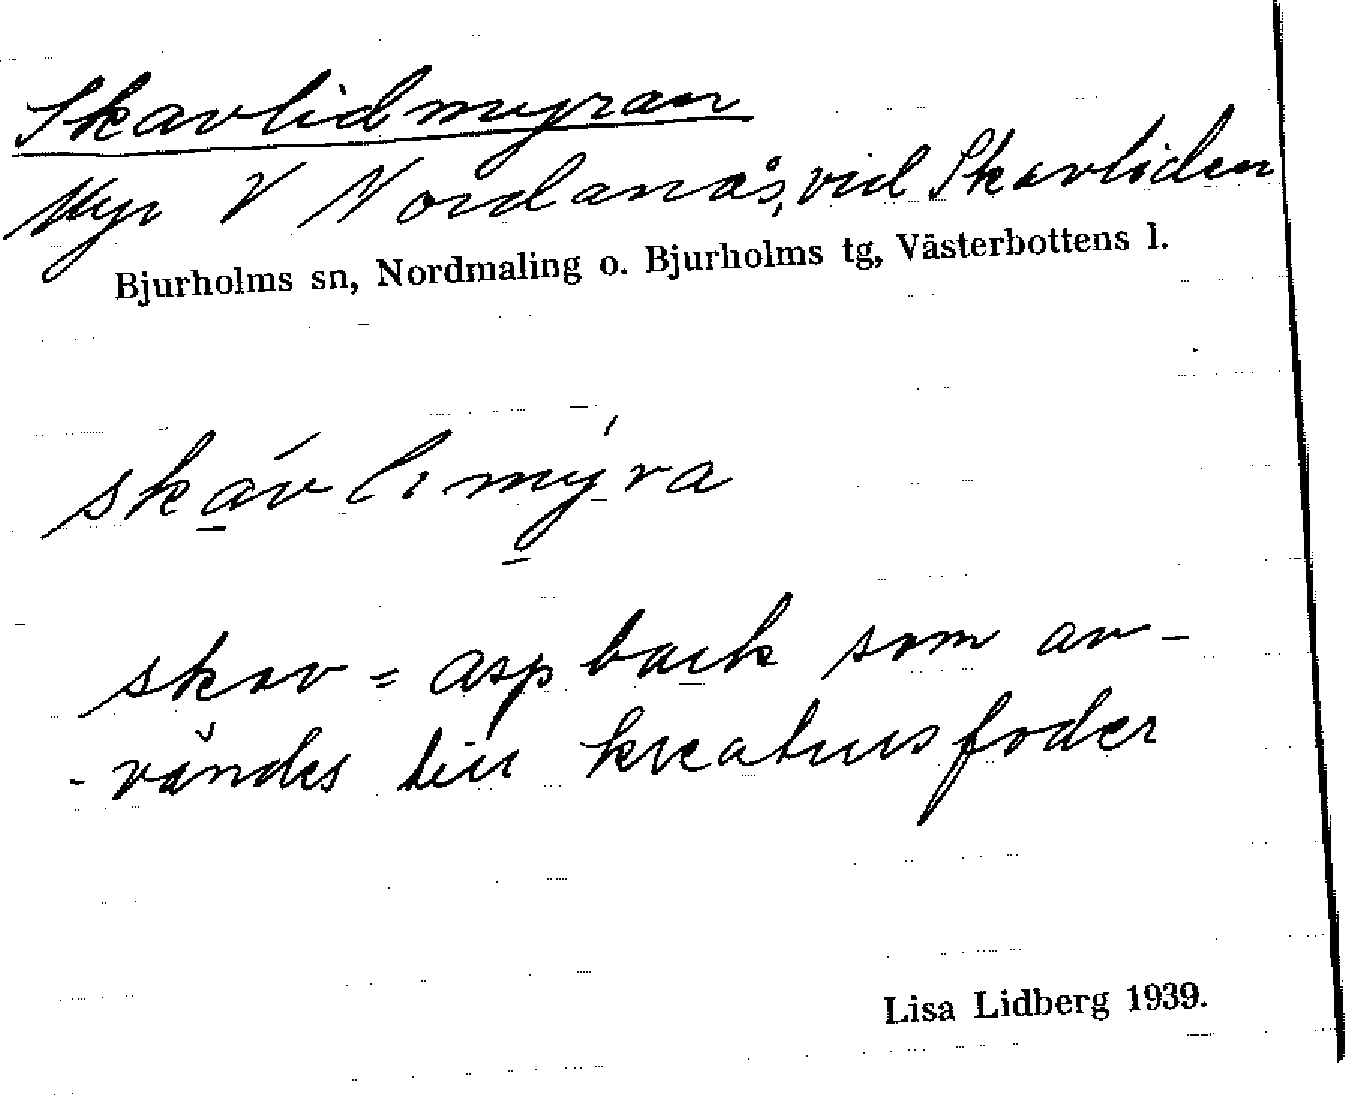 Skavlidmyran
Myr V Nordanås, vid Skavliden
Bjurholms sn, Nordmaling o. Bjurholms tg, Västerbottens l.
skávlimýra
skav = aspbark som an-
-vändes till kreatursfoder
Lisa Lidberg 1939.